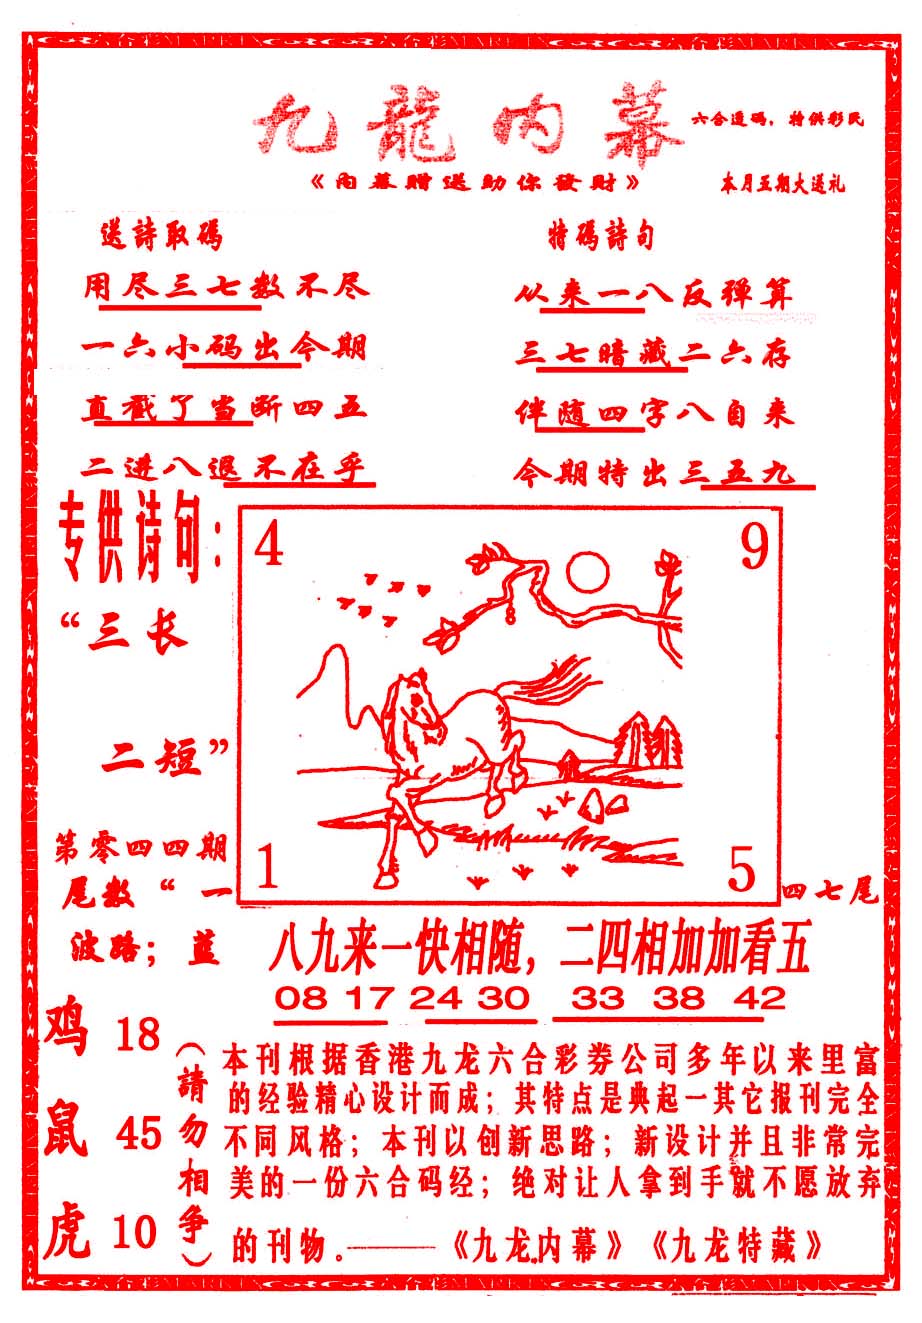 九龍内幕
六合透码，特供彩民
《内幕赠送助你發財》
本月五期大送礼
送詩取碼
用尽三七数不尽
一六小码出今期
直截了当断四五
二进八退不在乎
特碼詩句
从来一八反弹算
三七暗藏二六存
伴随四字八自来
今期特出三五九
专供诗句：
“三长
二短”
4 9
1 5
第零四四期
尾数“一
四七尾
波路；蓝
八九来一快相随，二四相加加看五
08 17 24 30 33 38 42
鸡 18
鼠 45
虎 10
（請勿相争）
本刊根据香港九龙六合彩券公司多年以来里富
的经验精心设计而成；其特点是典起一其它报刊完全
不同风格；本刊以创新思路；新设计并且非常完
美的一份六合码经；绝对让人拿到手就不愿放弃
的刊物。——《九龙内幕》《九龙特藏》